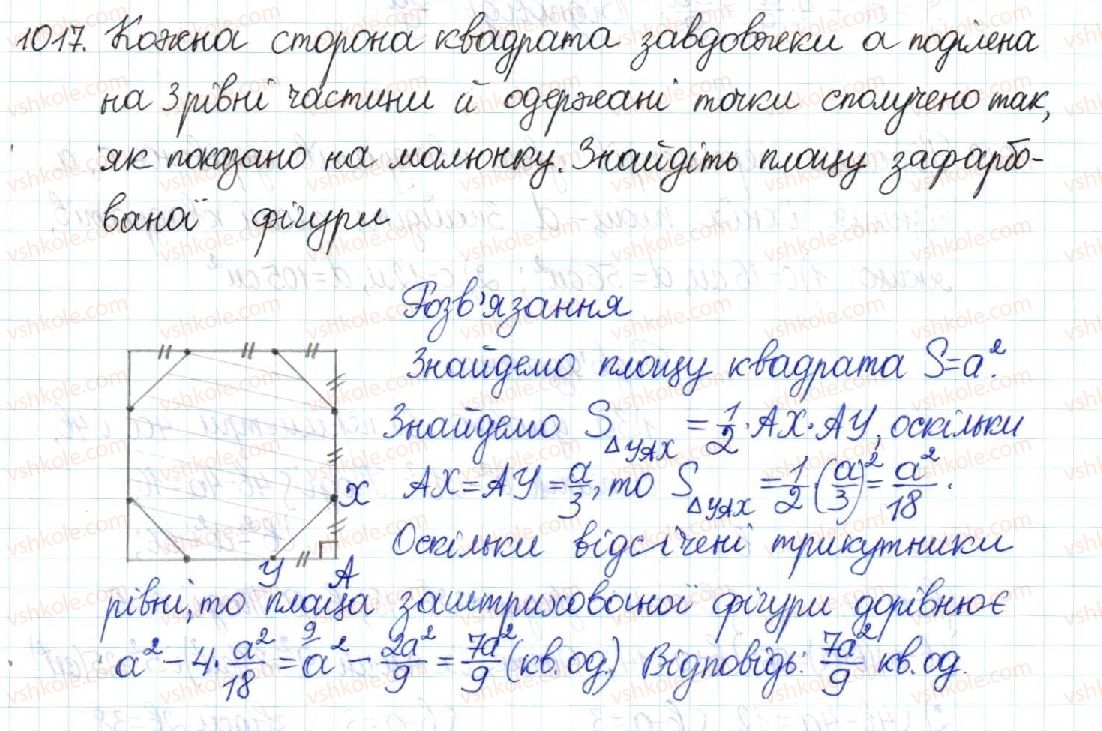 1017. Кожена сторона квадрата завдовжки а поділена
на 3 рівні частини й одержані точки сполучено так,
як показано на малюнку. Знайдіть площу зафарбо-
ваної фігури
Розв'язання
Знайдемо площу квадрата S=a².
Знайдемо S△YAX = 1/2 · AX · AY, оскільки
AX = AY = a/3, то S△YAX = 1/2 (a/3)² = a²/18.
Оскільки відсічені трикутники
X
Y A
рівні, то площа заштрихованої фігури дорівнює
a² - 4 · a²/18 = ⁹a² - 2a²/9 = 7a²/9 (кв.од.) Відповідь: 7a²/9 кв.од.
vshkole.com